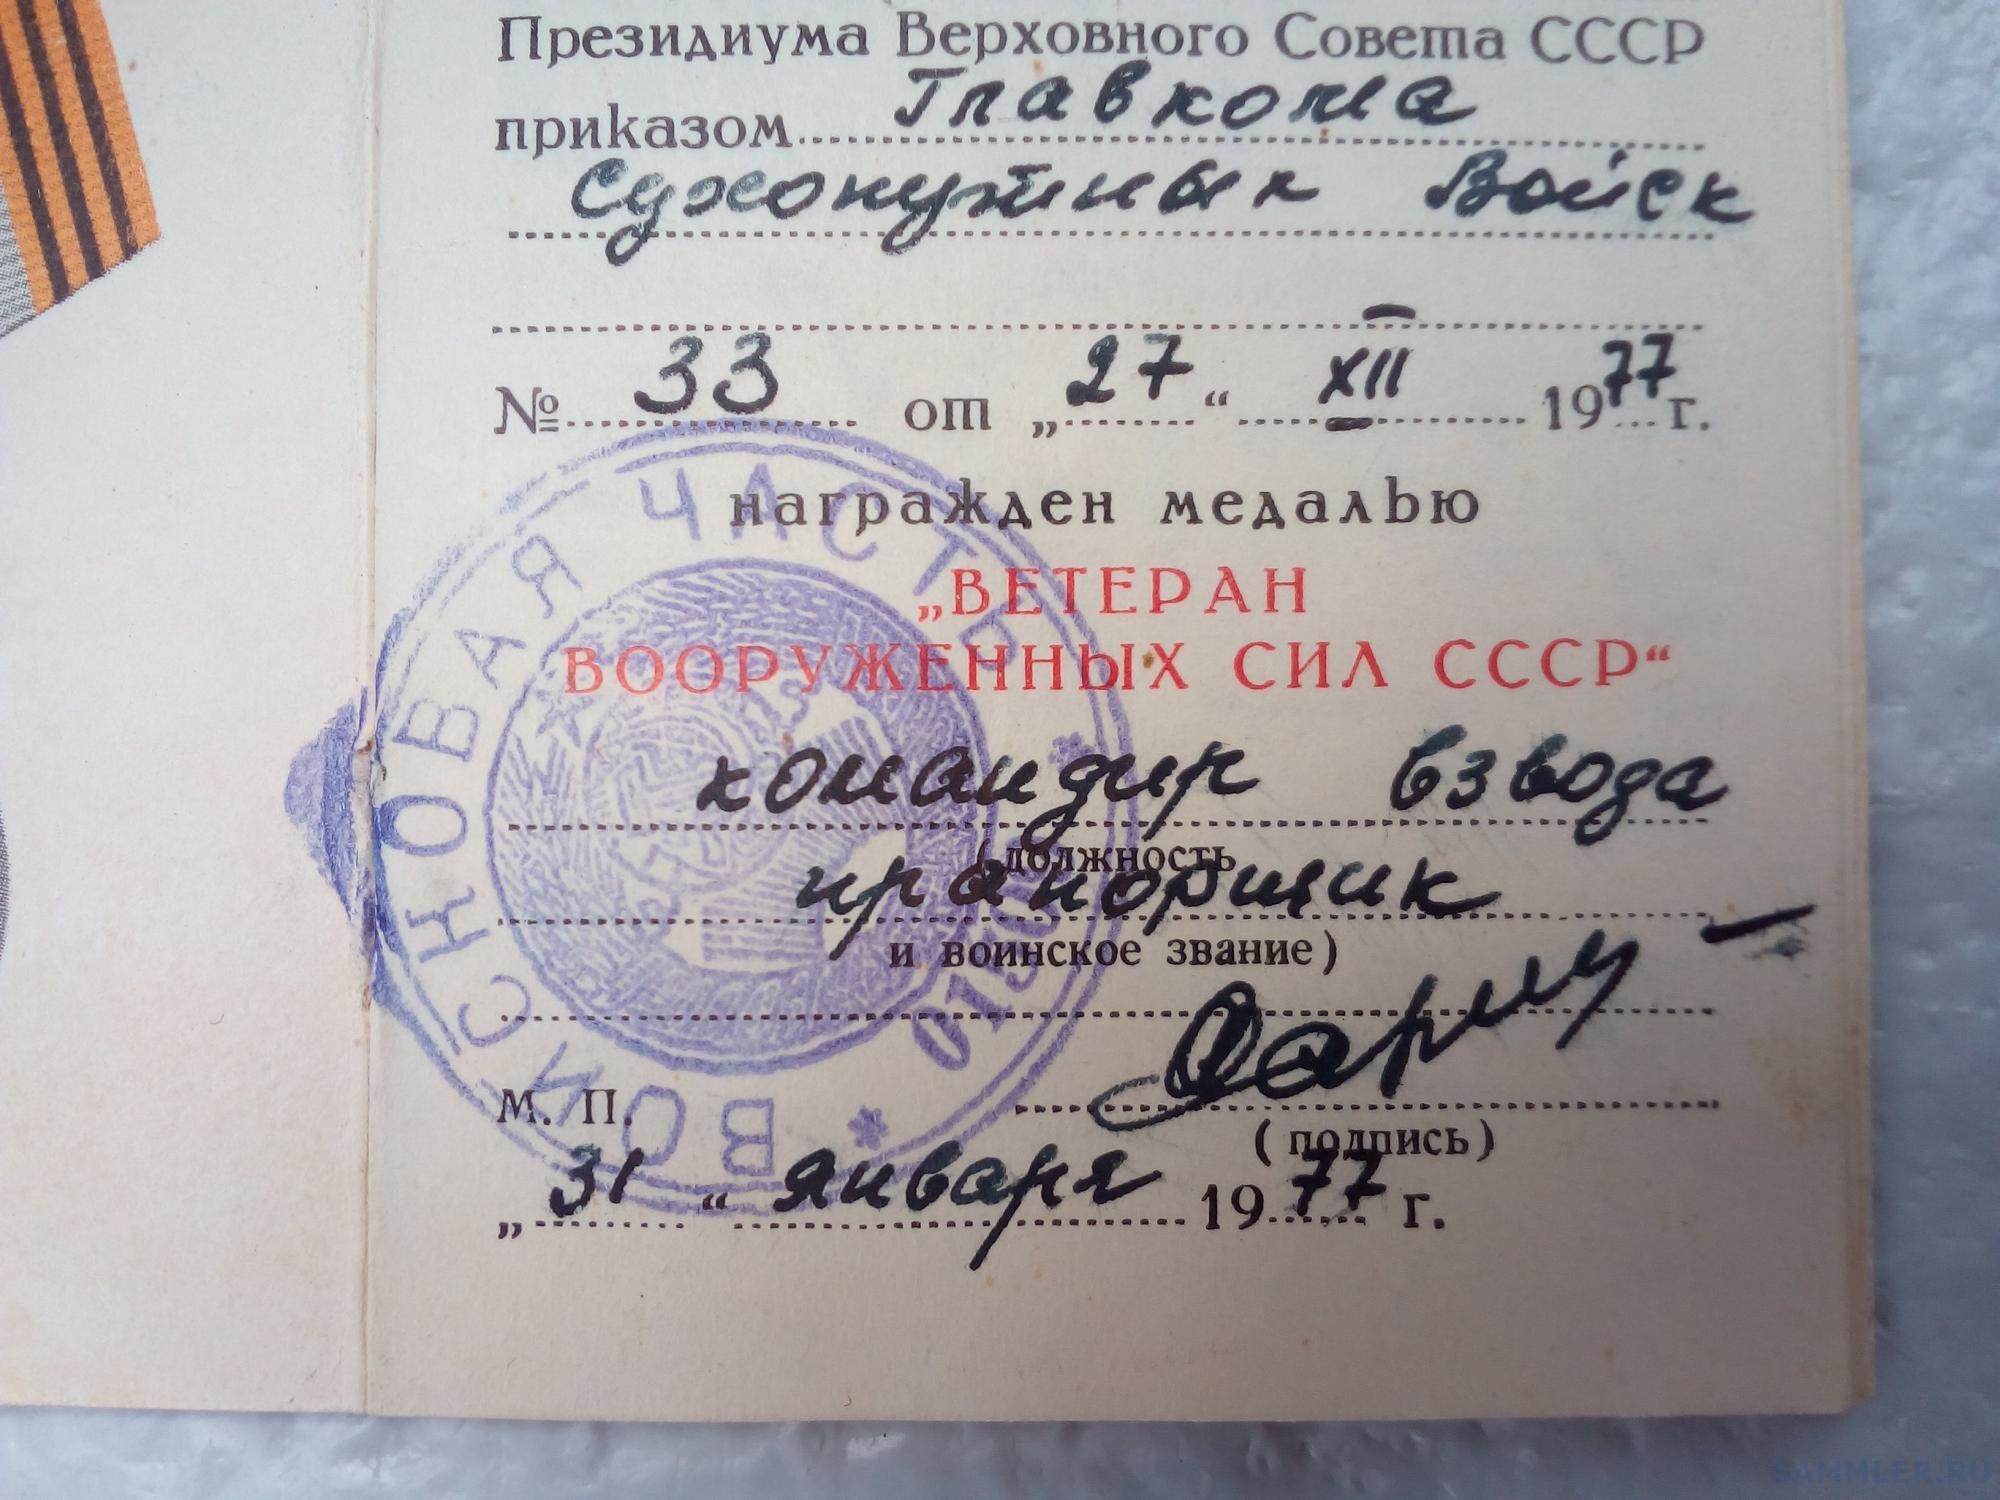 Президиума Верховного Совета СССР
приказом Главкома
Сухопутных Войск
№ 33 от „27“ XII 1977 г.
награжден медалью
„ВЕТЕРАН
ВООРУЖЕННЫХ СИЛ СССР“
командир взвода
(должность
прапорщик
и воинское звание)
М. П.
(подпись)
„31“ января 1977 г.
ВОЙСКОВАЯ ЧАСТЬ
SAMMLER.RU